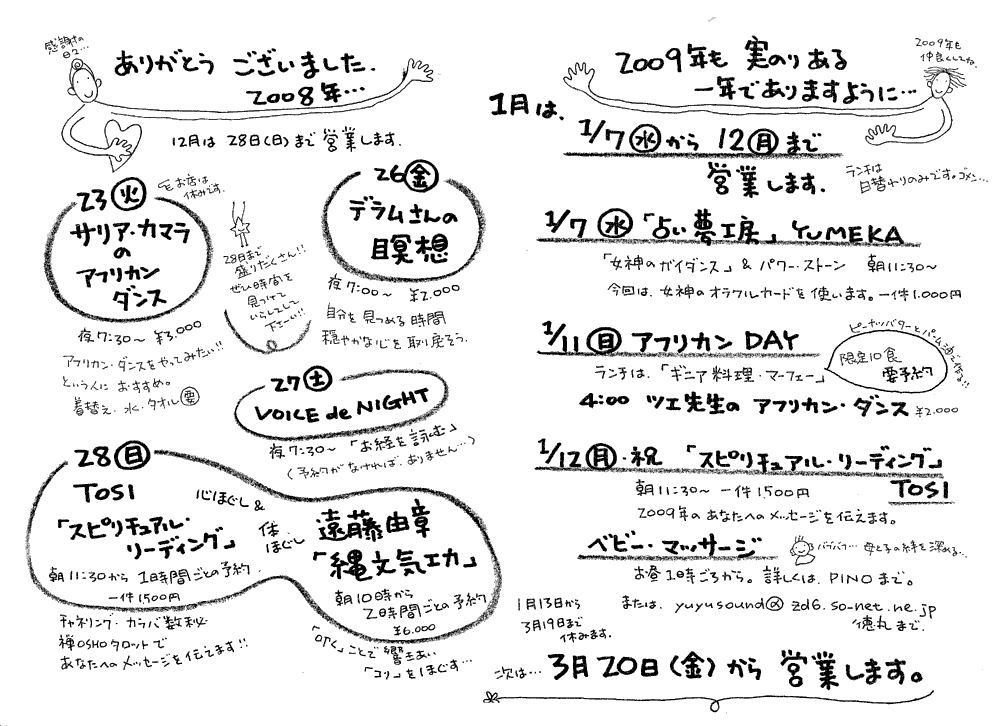 感謝の
日々…
ありがとう ございました.
2008年…
12月は 28日(日)まで 営業します.
23 火
サリア・カマラ
の
アフリカン
ダンス
お店は
休みです.
夜7:30〜 ¥3,000
アフリカン・ダンスをやってみたい!!
という人に おすすめ。
着替え・水・タオル 要
28日まで
盛りだくさん!!
ぜひ時間を
見つけて
いらして
下さーい!!
26 金
デラムさんの
瞑想
夜7:00〜 ¥2.000
自分を 見つめる 時間
穏やかな心を 取り戻そう.
27 土
VOICE de NIGHT
夜7:30〜 「お経を 詠む」
(予約がなければ、ありません…)
28 日
TOSI
「スピリチュアル・
リーディング」
朝11:30から 1日時間ごとの予約
一件1500円
チャネリング・カラバ数秘
禅OSHOタロットで
あなたへの メッセージを 伝えます!!
心ほぐし &
体
ほぐし
遠藤由章
「縄文気エカ」
朝10時から
2時間ごとの予約
¥6.000
ことで 響きあい
「コリ」を ほぐす…
2009年も
仲良くしてね.
2009年も 実のりある
一年でありますように…
1月は、
1/7 水 から 12 月 まで
営業します.
ランチは
日替わりのみです。ゴメン…
1/7 水 「占い夢工房」 YUMEKA
「女神のガイダンス」 & パワー・ストーン 朝11:30〜
今回は、女神の オラクルカードを 使います。一件1.000円
1/11 日 アフリカン DAY
ランチは、「ギニア料理・マーフェー」
ピーナッツバターとパーム油で作る!!
限定10食
要予約
4:00 ツエ先生の アフリカン・ダンス ¥2.000
1/12 月・祝 「スピリチュアル・リーディング」
TOSI
朝11:30〜 一件1500円
2009年の あなたへの メッセージを 伝えます。
ベビー・マッサージ
バブバブ… 母と子の絆を 深める…
お昼1時ごろから。詳しくは、PINOまで。
または、yuyusound@zd6.so-net.ne.jp
徳丸まで.
1月13日から
3月19日まで
休みます.
次は… 3月20日(金)から 営業します。